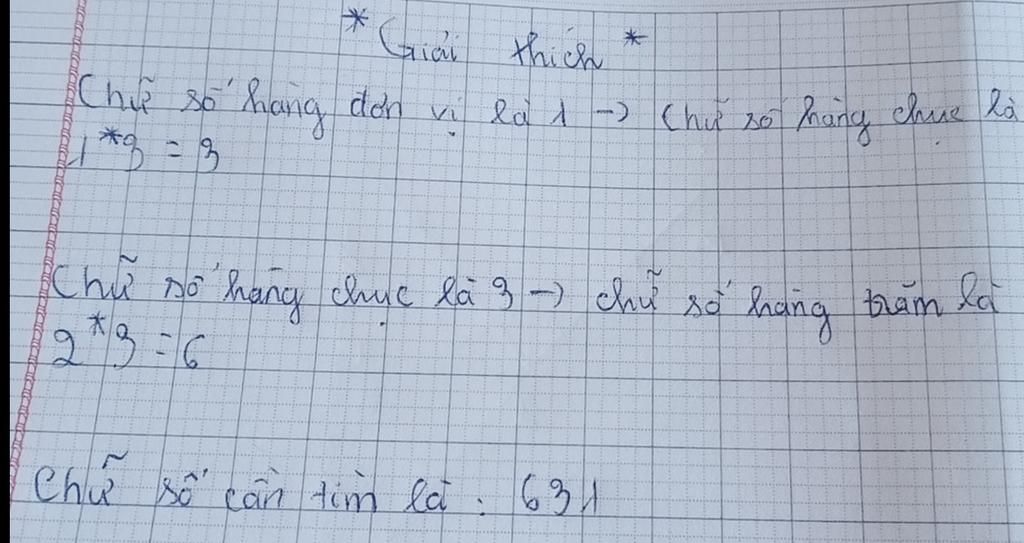 * Giải thích *
Chữ số hàng đơn vị là 1 -> Chữ số hàng chục là
1*3 = 3
Chữ số hàng chục là 3 -> chữ số hàng trăm là
2*3 = 6
Chữ số cần tìm là : 631